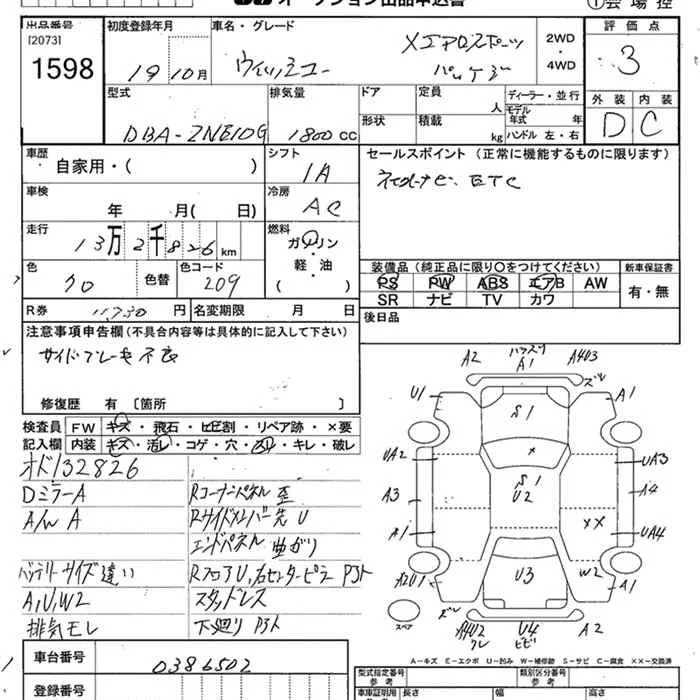 オークション出品申込書
①会場控
出品番号 初度登録年月 車名・グレード 評価点
[2073] 1598
19 10月
ウィッシュ Xエアロスポーツ パッケージ
2WD・4WD
3
型式 排気量 ドア 定員 人 ディーラー・並行
DBA-ZNE10G 1800cc
形状 積載 kg モデル年式 年 ハンドル 左・右
外装 内装
D C
車歴 シフト セールスポイント(正常に機能するものに限ります)
自家用・( ) IA
ETC
車検 冷房
年 月( 日) AC
走行 燃料
13万2千826km ガソリン・軽・油( )
装備品(純正品に限り○をつけてください) 新車保証書
PS PW ABS エアB AW 有・無
SR ナビ TV カワ
色 色替 色コード
クロ 209
R券 11,730円 名変期限 月 日
後日品
注意事項申告欄(不具合内容等は具体的に記入して下さい)
サイドブレーキ不良
修復歴 有 〔箇所 〕
検査員 FW キズ・飛石・ヒビ割・リペア跡・×要
記入欄 内装 キズ・汚レ・コゲ・穴・スリ・キレ・破レ
オド132826
Dミラー A Rコーナーパネル歪
A/W A Rサイドメンバー先U
エンドパネル曲がり
バッテリーサイズ違い RフロアU,右センターピラーアト
A,U,W2 スタッドレス
排気モレ 下廻りアト
車台番号 0386502
登録番号
A2 A1 A4U3
U1 S1 A1
UA2 × UA3
A3 S1 U2 A4
A1 ×× UA4
A2U1 U3 W2 A1
スペア A4U2 U4 ヒビ A2
A-キズ E-エクボ U-凹み W-補修跡 S-サビ C-腐食 ××-交換済
型式指定番号 参考 類別区分番号 参考
車庫証明用 参考 長さ 幅 高さ